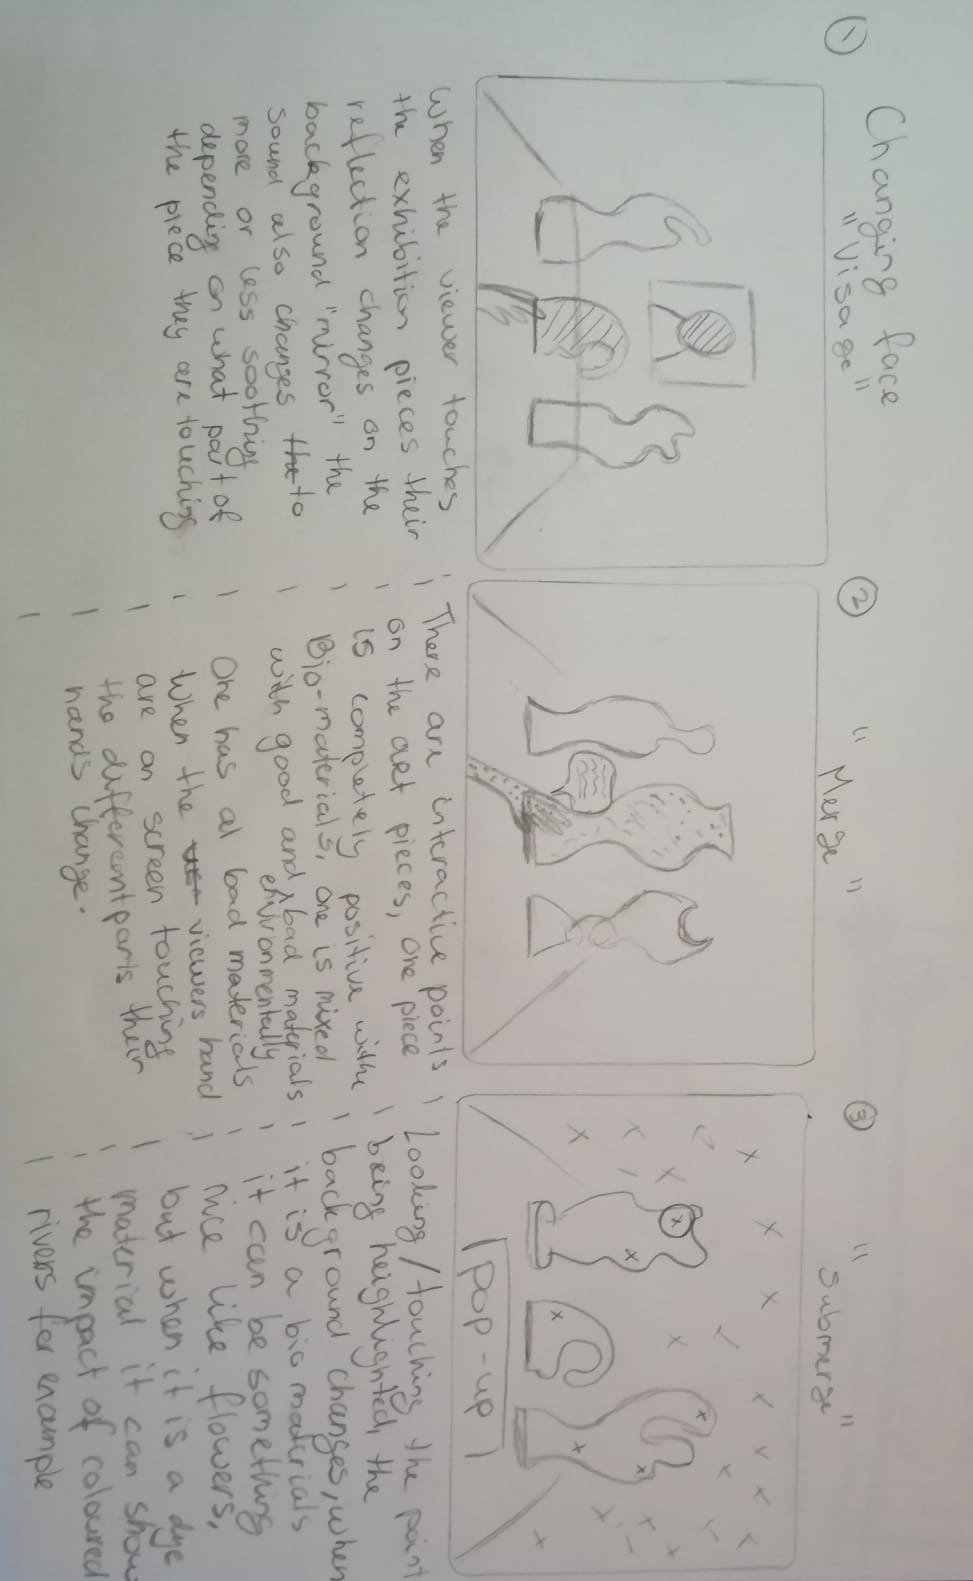 ①
Changing face
"Visage"
When the viewer touches
the exhibition pieces their
reflection changes on the
background "mirror" the
sound also changes to
more or less soothing
depending on what part of
the piece they are touching
②
"Merge"
There are interactive points
on the art pieces, one piece
is completely positive withe
Bio-materials, one is mixed
with good and bad materials
environmentally
One has al bad materials
When the viewers hand
are on screen touching
the different parts their
hands change.
③
"Submerge"
Pop-up
Looking/touching the point
being heighlighted, the
background changes, when
it is a bio materials
it can be something
nice like flowers,
but when it is a dye
material it can show
the impact of coloured
rivers for example